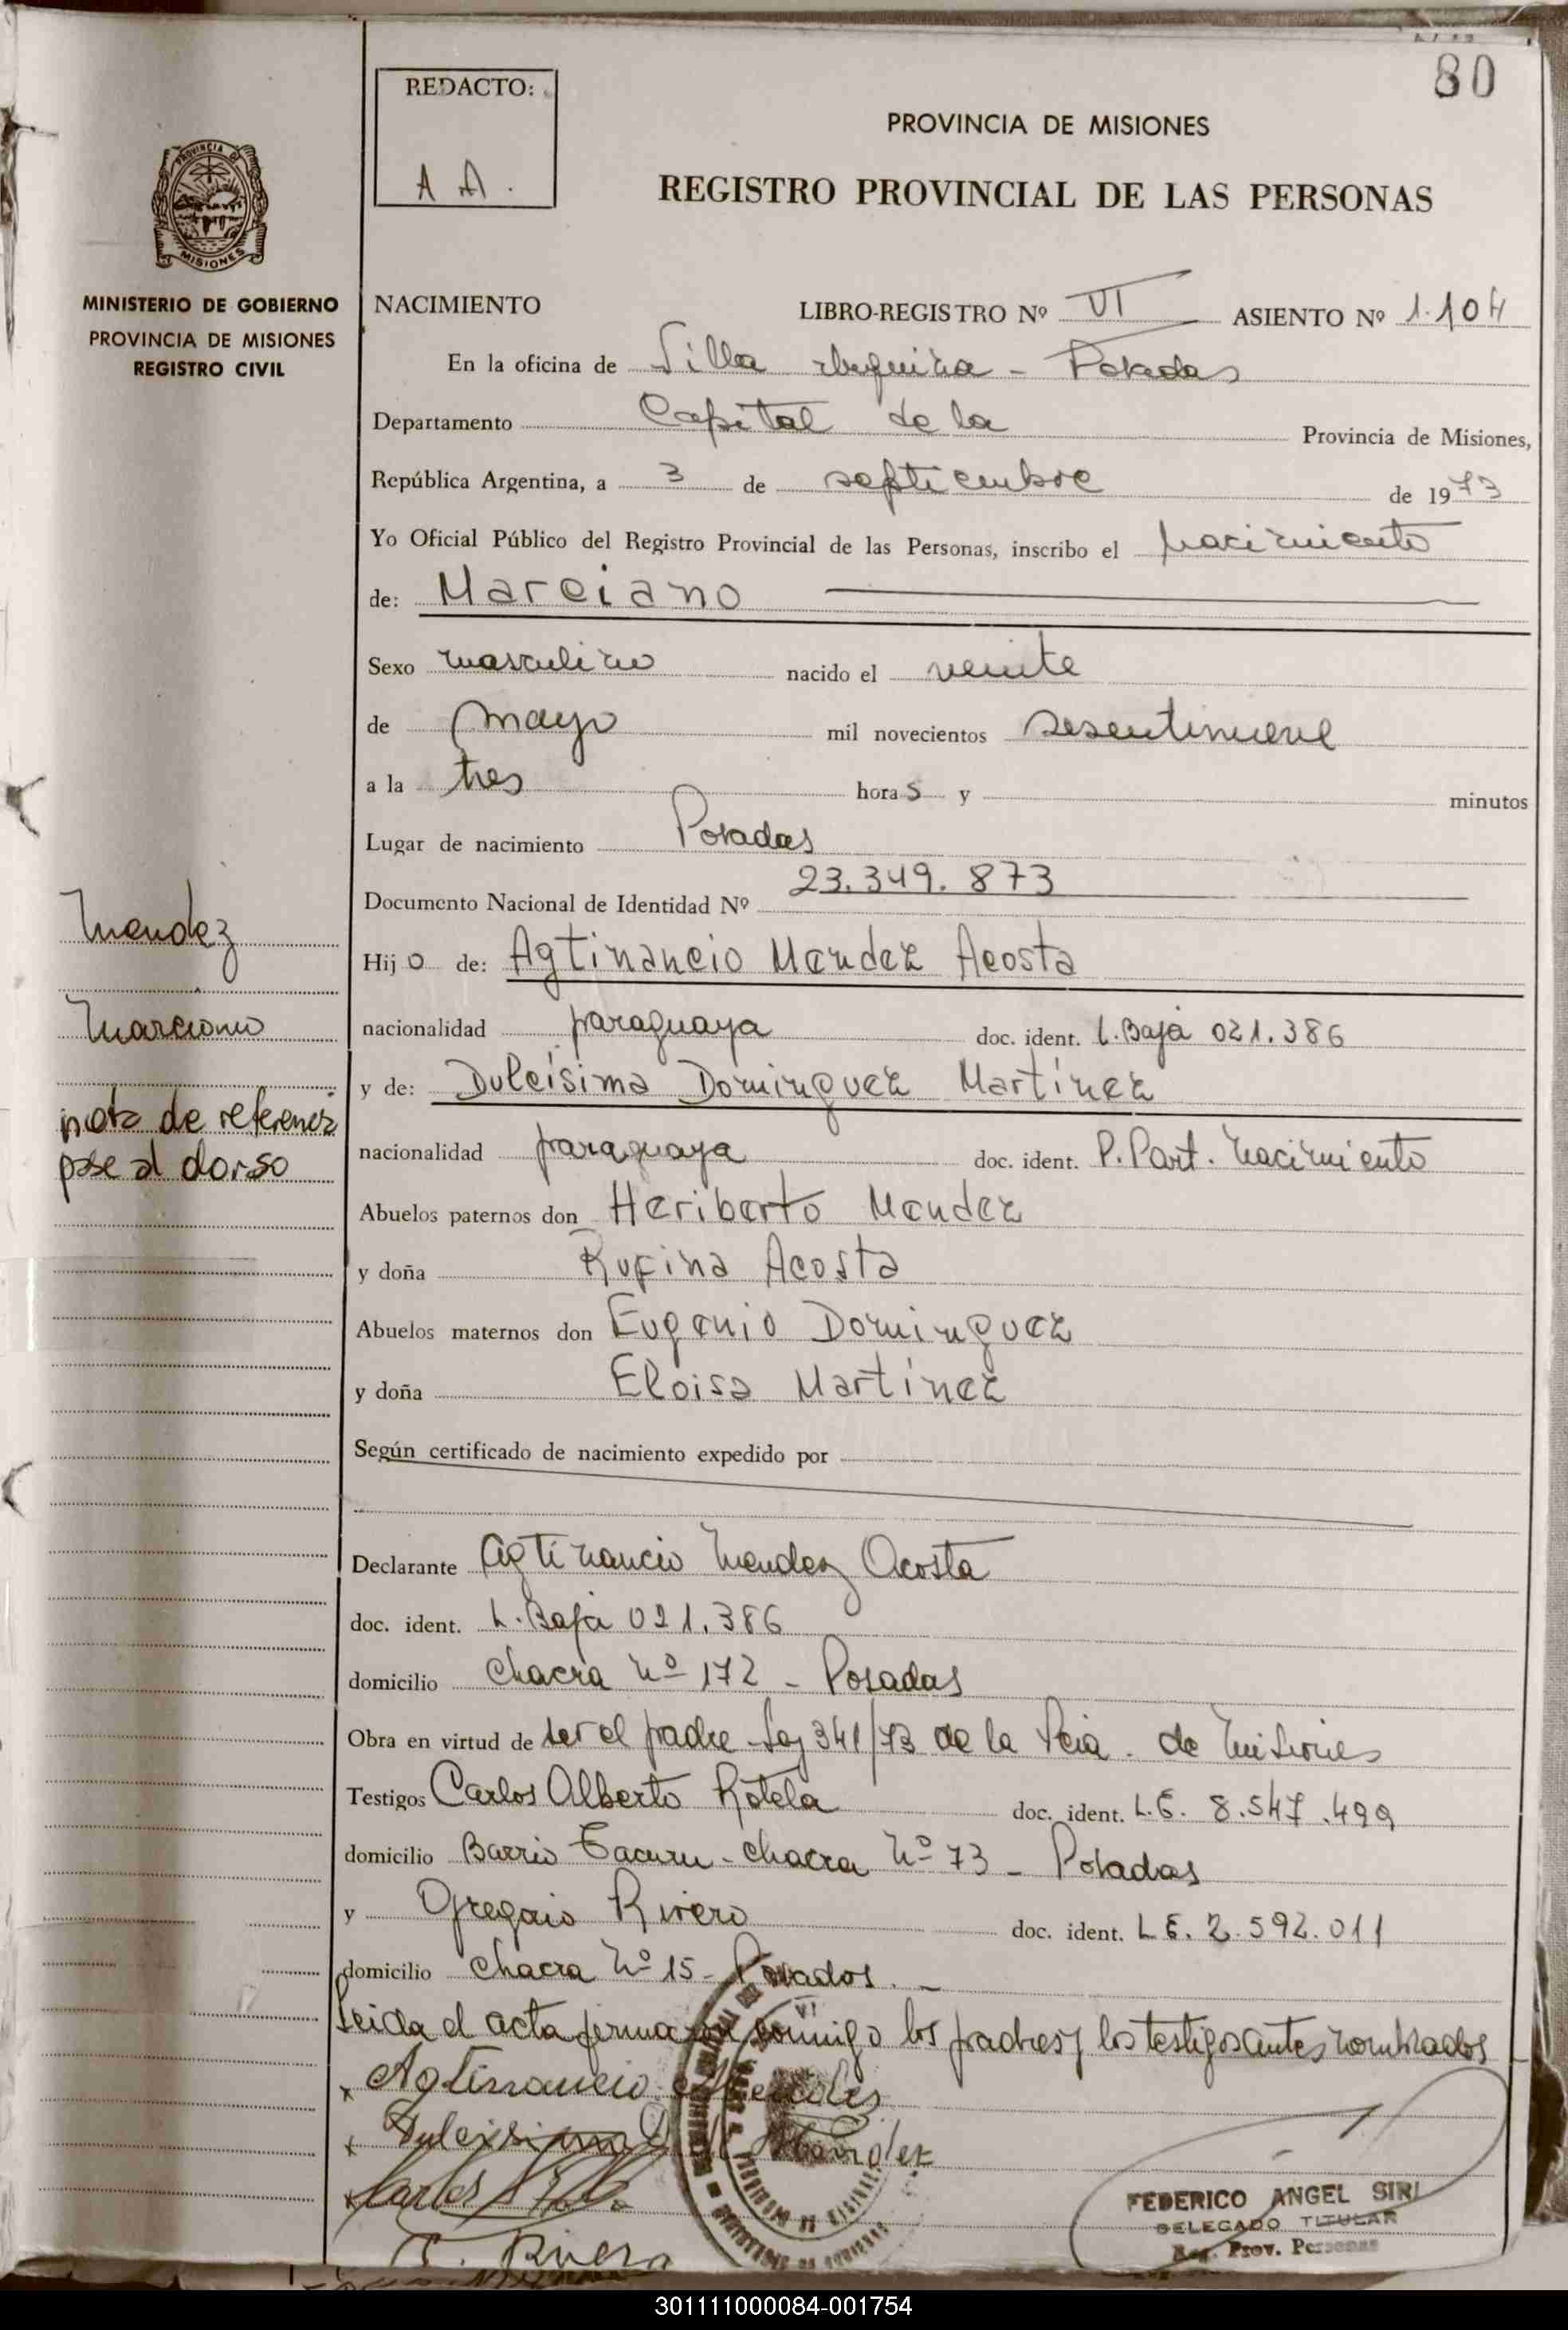 80
REDACTO:
A A.
PROVINCIA DE MISIONES
REGISTRO PROVINCIAL DE LAS PERSONAS
PROVINCIA DE
MISIONES
MINISTERIO DE GOBIERNO
PROVINCIA DE MISIONES
REGISTRO CIVIL
NACIMIENTO LIBRO-REGISTRO Nº VI ASIENTO Nº 1.104
En la oficina de Villa Urquiza - Posadas
Departamento Capital de la Provincia de Misiones,
República Argentina, a 3 de septiembre de 1973
Yo Oficial Público del Registro Provincial de las Personas, inscribo el nacimiento
de: Marciano
Sexo masculino nacido el veinte
de mayo mil novecientos sesentinueve
a la tres horas y minutos
Lugar de nacimiento Posadas
Documento Nacional de Identidad Nº 23.349.873
Mendez
Hijo de: Agtinancio Mendez Acosta
Marciano
nacionalidad paraguaya doc. ident. L. Baja 021.386
y de: Dulcísima Dominguez Martínez
nota de referencia
pase al dorso
nacionalidad paraguaya doc. ident. P. Part. Nacimiento
Abuelos paternos don Heriberto Mendez
y doña Rufina Acosta
Abuelos maternos don Eugenio Dominguez
y doña Eloisa Martínez
Según certificado de nacimiento expedido por
Declarante Agtinancio Mendez Acosta
doc. ident. L. Baja 021.386
domicilio Chacra Nº 172 - Posadas
Obra en virtud de ser el padre - Ley 341/73 de la Pcia. de Misiones
Testigos Carlos Alberto Rotela doc. ident. L.E. 8.547.499
domicilio Barrio Tacuru - Chacra Nº 73 - Posadas
y Gregorio Rivero doc. ident. L.E. 2.592.011
domicilio Chacra Nº 15 - Posadas. -
Leida el acta firman conmigo los padres y los testigos antes nombrados
x Agtinancio Mendes
x Dulcisima D Mendez
x Carlos
Rivero
FEDERICO ANGEL SIRI
DELEGADO TITULAR
Reg. Prov. Personas
301111000084-001754